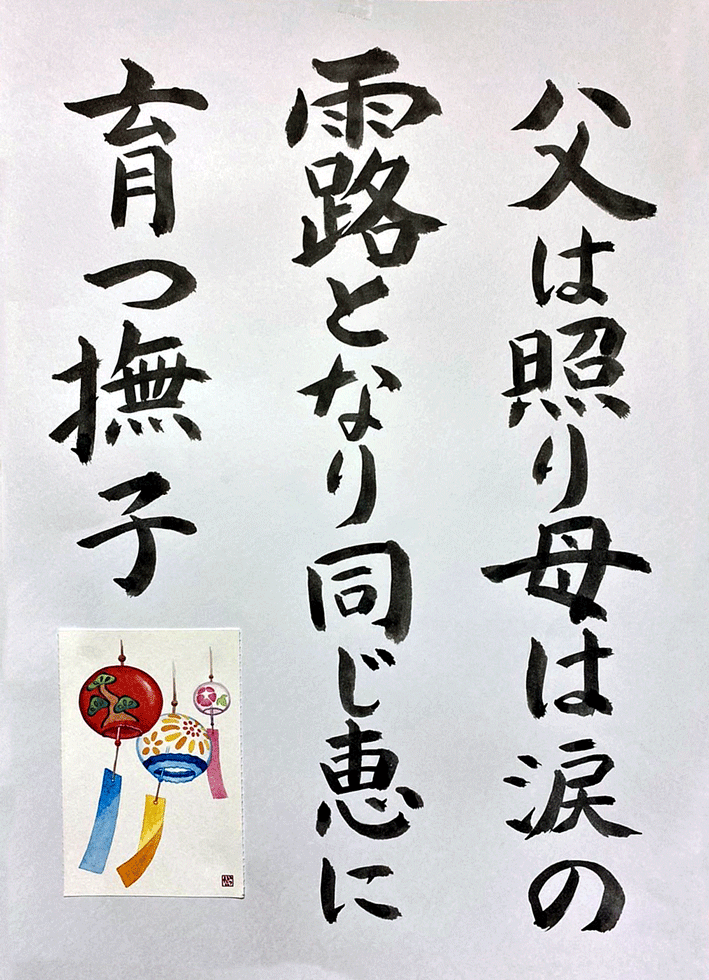 父は照り母は涙の
露となり同じ恵に
育つ撫子